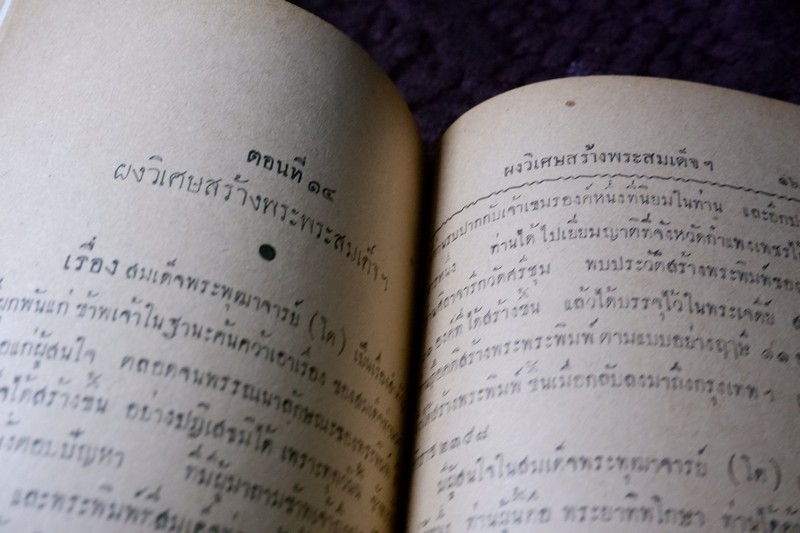 ตอนที่ ๑๔
ผงวิเศษสร้างพระพระสมเด็จฯ
เรื่อง สมเด็จพระพุฒาจารย์ (โต) เป็นเรื่อง
ผูกพันแก่ ข้าพเจ้าในฐานะค้นคว้าเอาเรื่อง ของสมเด็จ
แก่ผู้สนใจ ตลอดจนพรรณนาลักษณะของพระพิมพ์
ได้สร้างขึ้น อย่างปฏิเสธมิได้ เพราะทุกวันนี้
ตอบปัญหา ที่มีผู้มาถามข้าพเจ้า
และพระพิมพ์ที่สมเด็จ
ผงวิเศษสร้างพระสมเด็จฯ
รบปากกับเจ้าเขมรองค์หนึ่งที่นิยมในท่าน และอีก
หนึ่ง ท่านได้ไปเยี่ยมญาติที่จังหวัดกำแพงเพชร
วัดศรีชุม พบประวัติสร้างพระพิมพ์ของ
องค์ที่ได้สร้างขึ้น แล้วได้บรรจุไว้ในพระเจดีย์
คติสร้างพระพิมพ์ ตามแบบอย่างฤๅษี ๑๑
ได้สร้างพระพิมพ์ ขึ้นเมื่อกลับลงมาถึงกรุงเทพฯ
๒๓๙๘
มีผู้สนใจในสมเด็จพระพุฒาจารย์ (โต)
ท่านผู้นี้คือ พระยาทิพโกษา ท่านได้